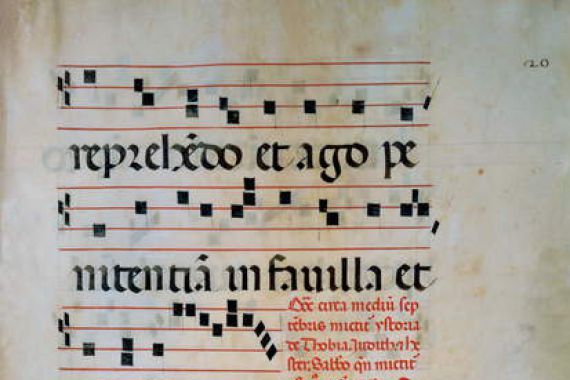 20
reprehēdo et ago pe
nitentiā in favilla et
Qđ circa mediū sep
tēbris mictit̄ ystoria
de Thobia, Judith, he
ster. Sabb̄o qn̄ mictit̄